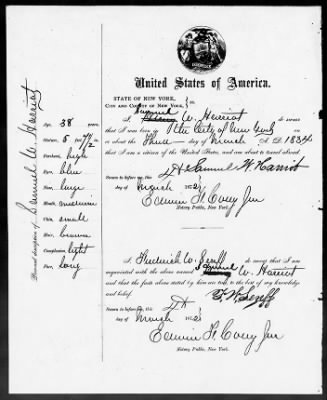 EXCELSIOR
United States of America.
STATE OF NEW YORK,
CITY AND COUNTY OF NEW YORK, } ss.
I Samuel W. Harriot do swear
that I was born in the City of New York
on or about the Third of March A. D. 1834
that I am a citizen of the United States, and am about to travel abroad.
Sworn to before me, this 27th Samuel W. Harriot
day of March 187
Edwin F. Corey Jnr
Notary Public, New York.
I Frederick W. do swear that I am
acquainted with the above named Samuel W. Harriot
and that the facts above stated by him are true to the best of my knowledge
and belief.
Sworn to before me, this
day of March 187
Edwin F. Corey Jnr
Notary Public, New York.
Personal description of Samuel W. Harriot
Age, 38 years.
Stature, 5 ft 7 1/2
Forehead, high
Eyes, blue
Nose, large
Mouth, medium
Chin, small
Hair, brown
Complexion, light
Face, long